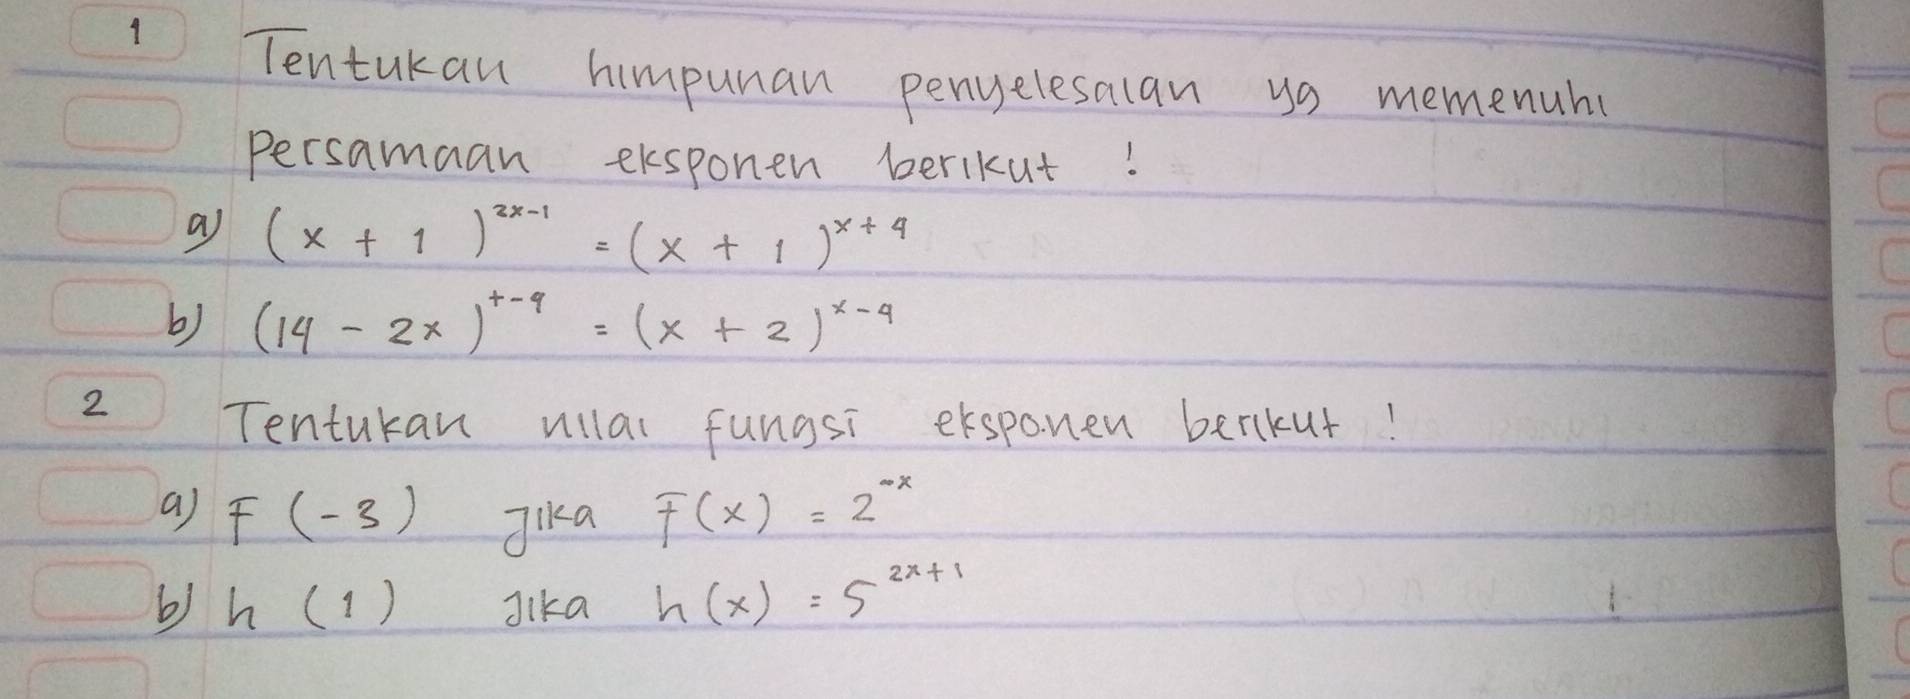 1 Tentukan himpunan penyelesaian yg memenuhi
persamaan eksponen berikut !
a) (x + 1)^{2x-1} = (x + 1)^{x+4}
b) (14 - 2x)^{+-4} = (x + 2)^{x-4}
2 Tentukan nilai fungsi eksponen berikut !
a) F (-3) jika F(x) = 2^{-x}
b) h (1) jika h(x) = 5^{2x+1}